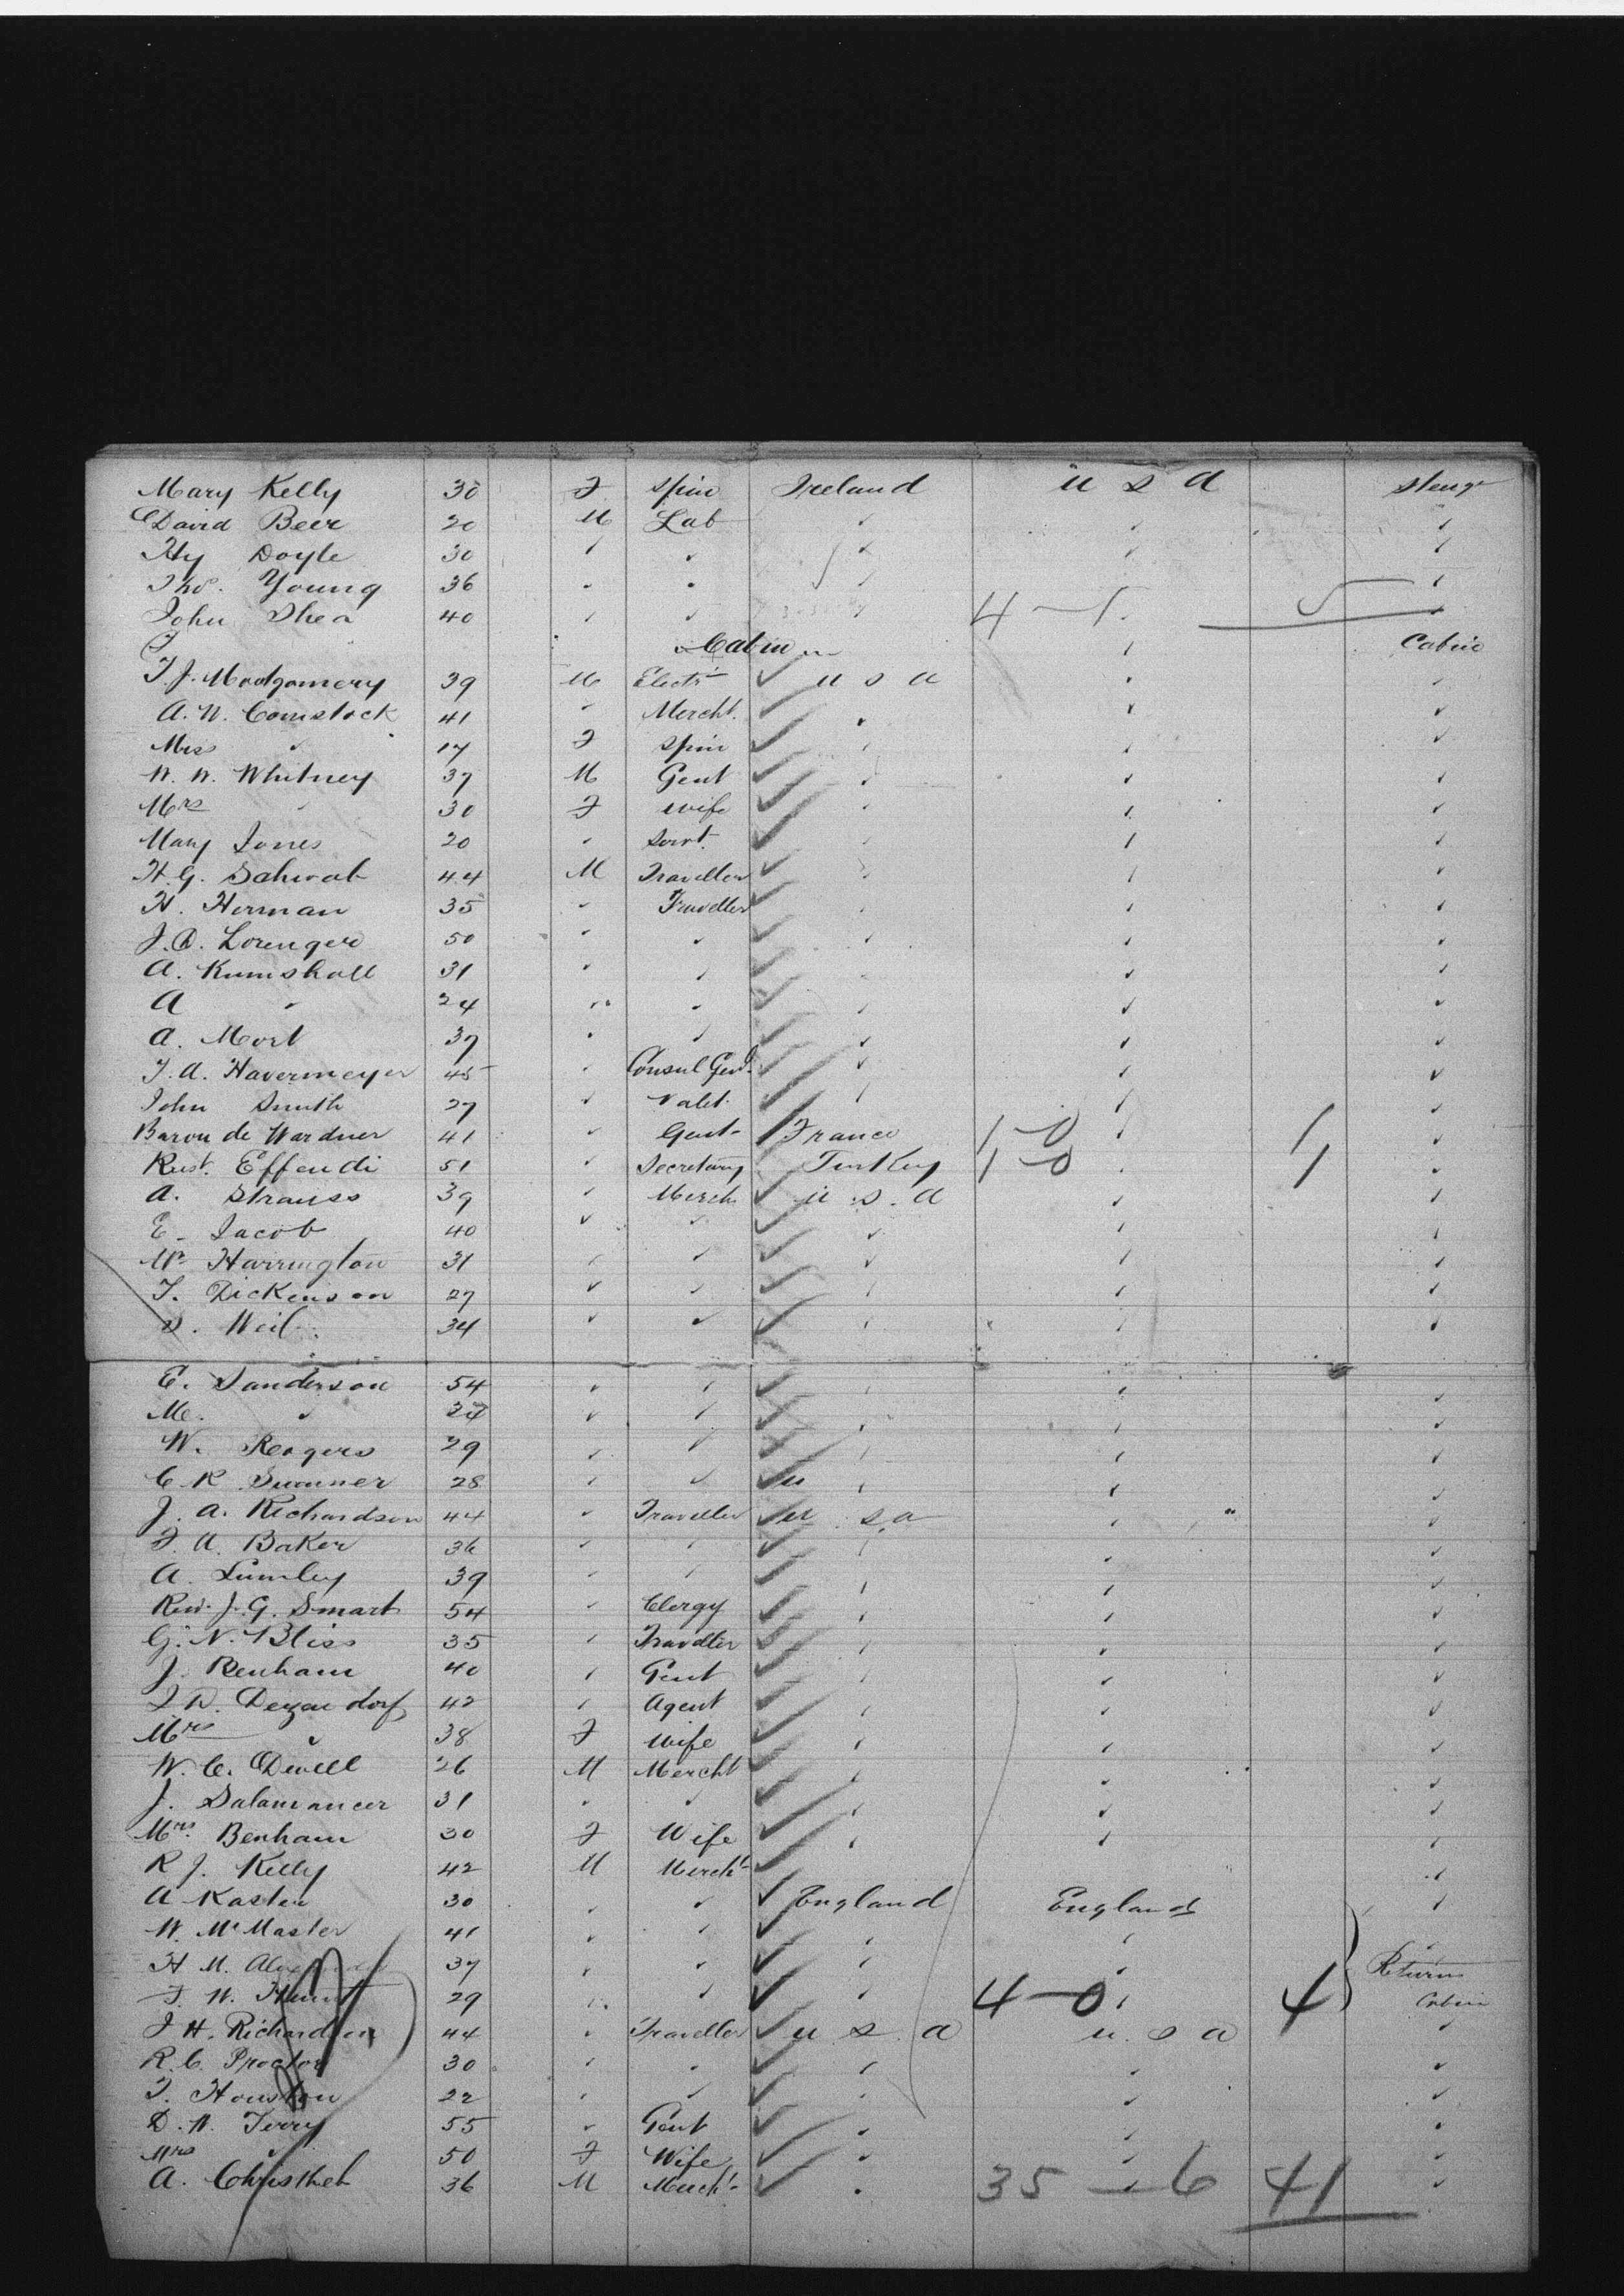 Mary Kelly 30 F Spin Ireland U S A Steage
David Beer 20 M Lab
Hy Doyle 30
Thos. Young 36
John Shea 40 4 - 1 5
Cabin Cabin
T. J. Montgomery 39 M Electn U S A
A. W. Comstock 41 Mercht.
Miss " 17 F Spin
W. W. Whitney 37 M Gent
Mrs " 30 F Wife
Mary Jones 20 Servt.
H. G. Schwab 44 M Traveller
H. Herman 35 Traveller
J. D. Lorenger 50
A. Kumshall 31
A " 24
A. Mort 37
T. A. Havermeyer 45 Consul Genl.
John Smith 27 Valet
Baron de Wardner 41 Gent France 1 - 0 1
Rust. Effendi 51 Secretary Turkey 1 - 0 1
A. Strauss 39 Merch U. S. A
E. Jacob 40
Mr Harrington 31
T. Dickenson 27
S. Weil 34
E. Sanderson 54
M. "
W. Rogers 29
C. R. Sumner 28 U
J. A. Richardson 44 Traveller U S. A
F. A. Baker 36
A. Lumley 39
Revd. J. G. Smart 54 Clergy
G. N. Bliss 35 Traveller
J. Benham 40 Gent
42 Agent
Mrs " 38 F Wife
W. C. Dewell 26 M Mercht
J. Salamancer 31
Mrs. Benham 30 F Wife
R J. Kelly 42 M Mercht
A Kaster 30 England England
W. McMaster 41
H. M. 37 Return
F. W. Hunt 29 4 - 0 4 Cabin
J H. Richardson 44 Traveller U. S. A U. S A
R. C. Proctor 30
T. Houston 22
D. W. Terry 55 Gent
Mrs " 50 F Wife
A. 36 M Mercht 35 - 6 41